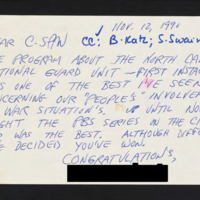 NOV. 12, 199
EAR C-SPAN CC: B. Katz; S. Swain
E PROGRAM ABOUT THE NORTH CAR
TIONAL GUARD UNIT - FIRST INSTAL
AS ONE OF THE BEST I'VE SEEN
NCERNING OUR "PEOPLE'S" INVOLVEM
WAR SITUATIONS. UP UNTIL NOW
GHT THE PBS SERIES ON THE CI
WAS THE BEST. ALTHOUGH DIFFE
E DECIDED YOU'VE WON.
CONGRATULATIONS,